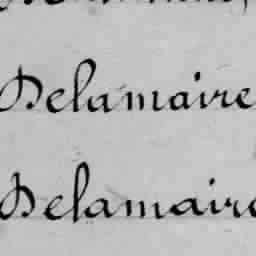 Delamaire
Delamaire